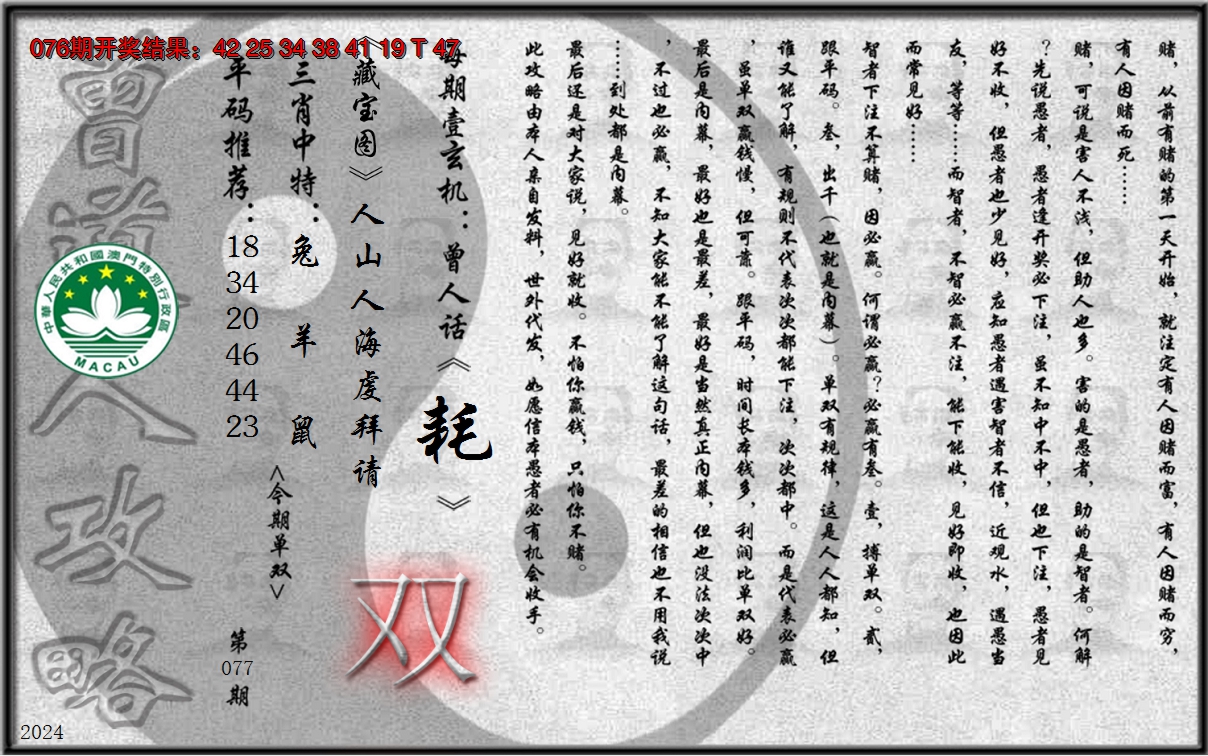 076期开奖结果：42 25 34 38 41 19 T 47
赌，从前有赌的第一天开始，就注定有人因赌而富，有人因赌而穷，
有人因赌而死……
赌，可说是害人不浅，但助人也多。害的是愚者，助的是智者。何解
？先说愚者，愚者逢开奖必下注，虽不知中不中，但也下注，愚者见
好不收，但愚者也少见好，应知愚者遇害智者不信，近观水，遇愚当
友，等等……而智者，不智必赢不注，能下能收，见好即收，也因此
而常见好……
智者下注不算赌，因必赢。何谓必赢？必赢有叁。壹，搏单双。贰，
跟平码。叁，出千（也就是内幕）。单双有规律，这是人人都知，但
谁又能了解，有规则不代表次次都能下注，次次都中。而是代表必赢
，虽单双赢钱慢，但可靠。跟平码，时间长本钱多，利润比单双好。
最后是内幕，最好也是最差，最好是当然真正内幕，但也没法次次中
，不过也必赢，不知大家能不能了解这句话，最差的相信也不用我说
……到处都是内幕。
最后还是对大家说，见好就收。不怕你赢钱，只怕你不赌。
此攻略由本人亲自发料，世外代发，如愿信本愚者必有机会收手。
每期壹玄机：曾人话《耗》
《藏宝图》人山人海虔拜请
三肖中特：兔 羊 鼠
<今期单双>
双
平码推荐：
18
34
20
46
44
23
第
077
期
曾道人攻略
中華人民共和國澳門特別行政區
MACAU
2024